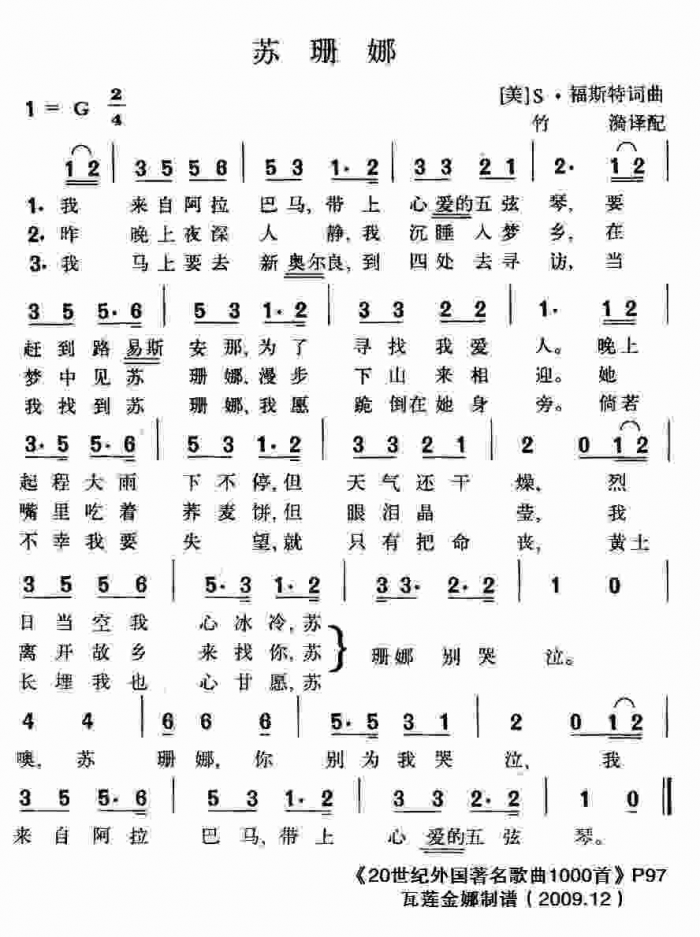 苏珊娜
1=G 2/4
[美]S·福斯特词曲
竹漪译配
1 2 | 3 5 5 6 | 5 3 1· 2 | 3 3 2 1 | 2· 1 2 |
1·我 来自阿拉 巴马,带上 心爱的五弦 琴,要
2·昨 晚上夜深 人静,我 沉睡入梦乡,在
3·我 马上要去 新奥尔良,到 四处去寻 访,当
3 5 5· 6 | 5 3 1· 2 | 3 3 2 2 | 1· 1 2 |
赶到路易斯 安那,为了 寻找我爱 人。晚上
梦中见苏 珊娜,漫步 下山来相 迎。她
我找到苏 珊娜,我愿 跪倒在她身 旁。倘若
3· 5 5· 6 | 5 3 1· 2 | 3 3 2 1 | 2 0 1 2 |
起程大雨 下不停,但 天气还干 燥, 烈
嘴里吃着 荞麦饼,但 眼泪晶 莹, 我
不幸我要 失望,就 只有把命 丧, 黄土
3 5 5 6 | 5· 3 1· 2 | 3 3· 2· 2 | 1 0 |
日当空我 心冰冷,苏
离开故乡 来找你,苏 珊娜 别哭 泣。
长埋我也 心甘愿,苏
4 4 | 6 6 6 | 5· 5 3 1 | 2 0 1 2 |
噢,苏 珊娜,你 别为我哭 泣, 我
3 5 5· 6 | 5 3 1· 2 | 3 3 2· 2 | 1 0 ‖
来自阿拉 巴马,带上 心爱的五弦 琴。
《20世纪外国著名歌曲1000首》P97
瓦莲金娜制谱(2009.12)